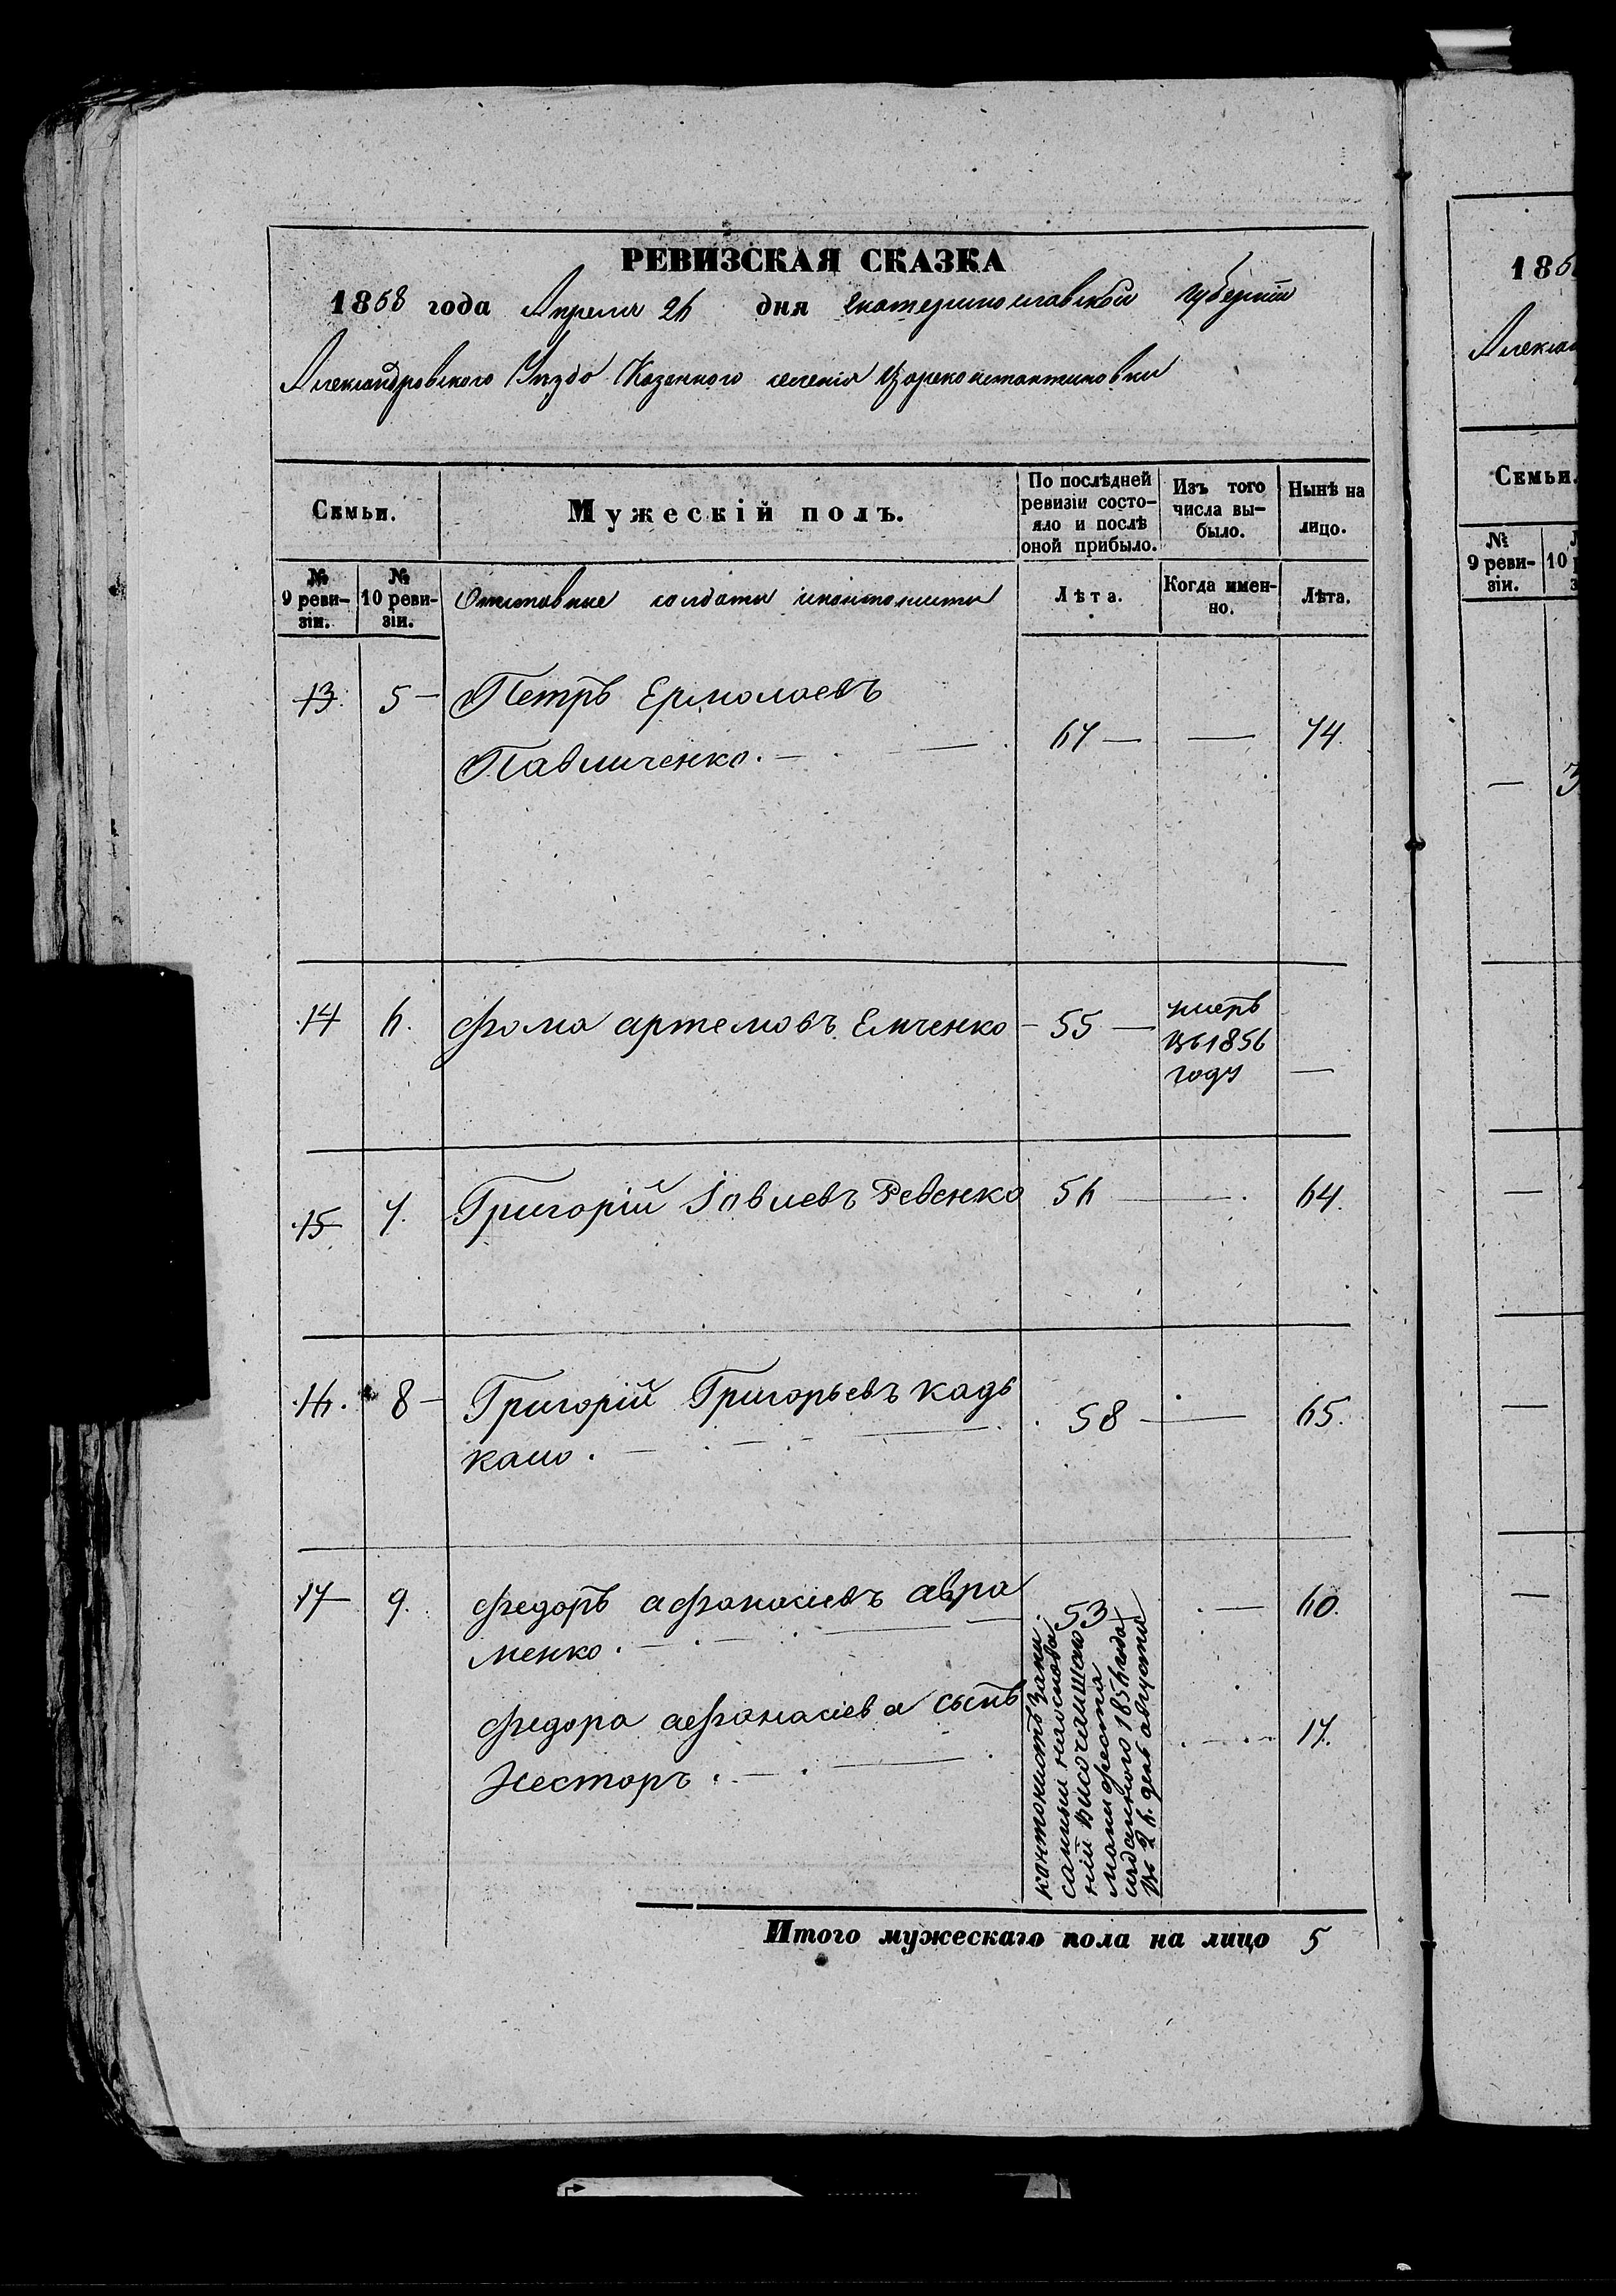 РЕВИЗСКАЯ СКАЗКА
1858 года Апреля 26 дня Екатеринославской губерніи
Александровского Уезда Казенного селенія Цареконстантиновки
Семьи.
Мужескій полъ.
По послѣдней ревизіи состо-яло и послѣ оной прибыло.
Изъ того числа вы-было.
Нынѣ на лицо.
№ 9 реви-зіи.
№ 10 реви-зіи.
Отставные солдаты
Лѣта.
Когда имен-но.
Лѣта.
13. 5 — Петръ Ермолаевъ
Павличенко. — 67 — — 74.
14 6. Фома артемовъ Емченко — 55 — умеръ
въ 1856
году —
15 7. Григорій Іовлевъ Ревенко 56 — 64.
16. 8 — Григорій Григорьевъ кадь
кало. — 58 — 65.
17 9. Федоръ афанасіевъ авра
менко. — 53 — 60.
Федора афанасіева сынъ
Несторъ. — 17.
кантонистъ запи
санный на основа
ніи высочайшаго
манифеста
изданного 1856 года
въ 26. день августа
Итого мужескаго пола на лицо 5
186
Алексан
Семьи.
№ 9 реви-зіи.
10
— 3